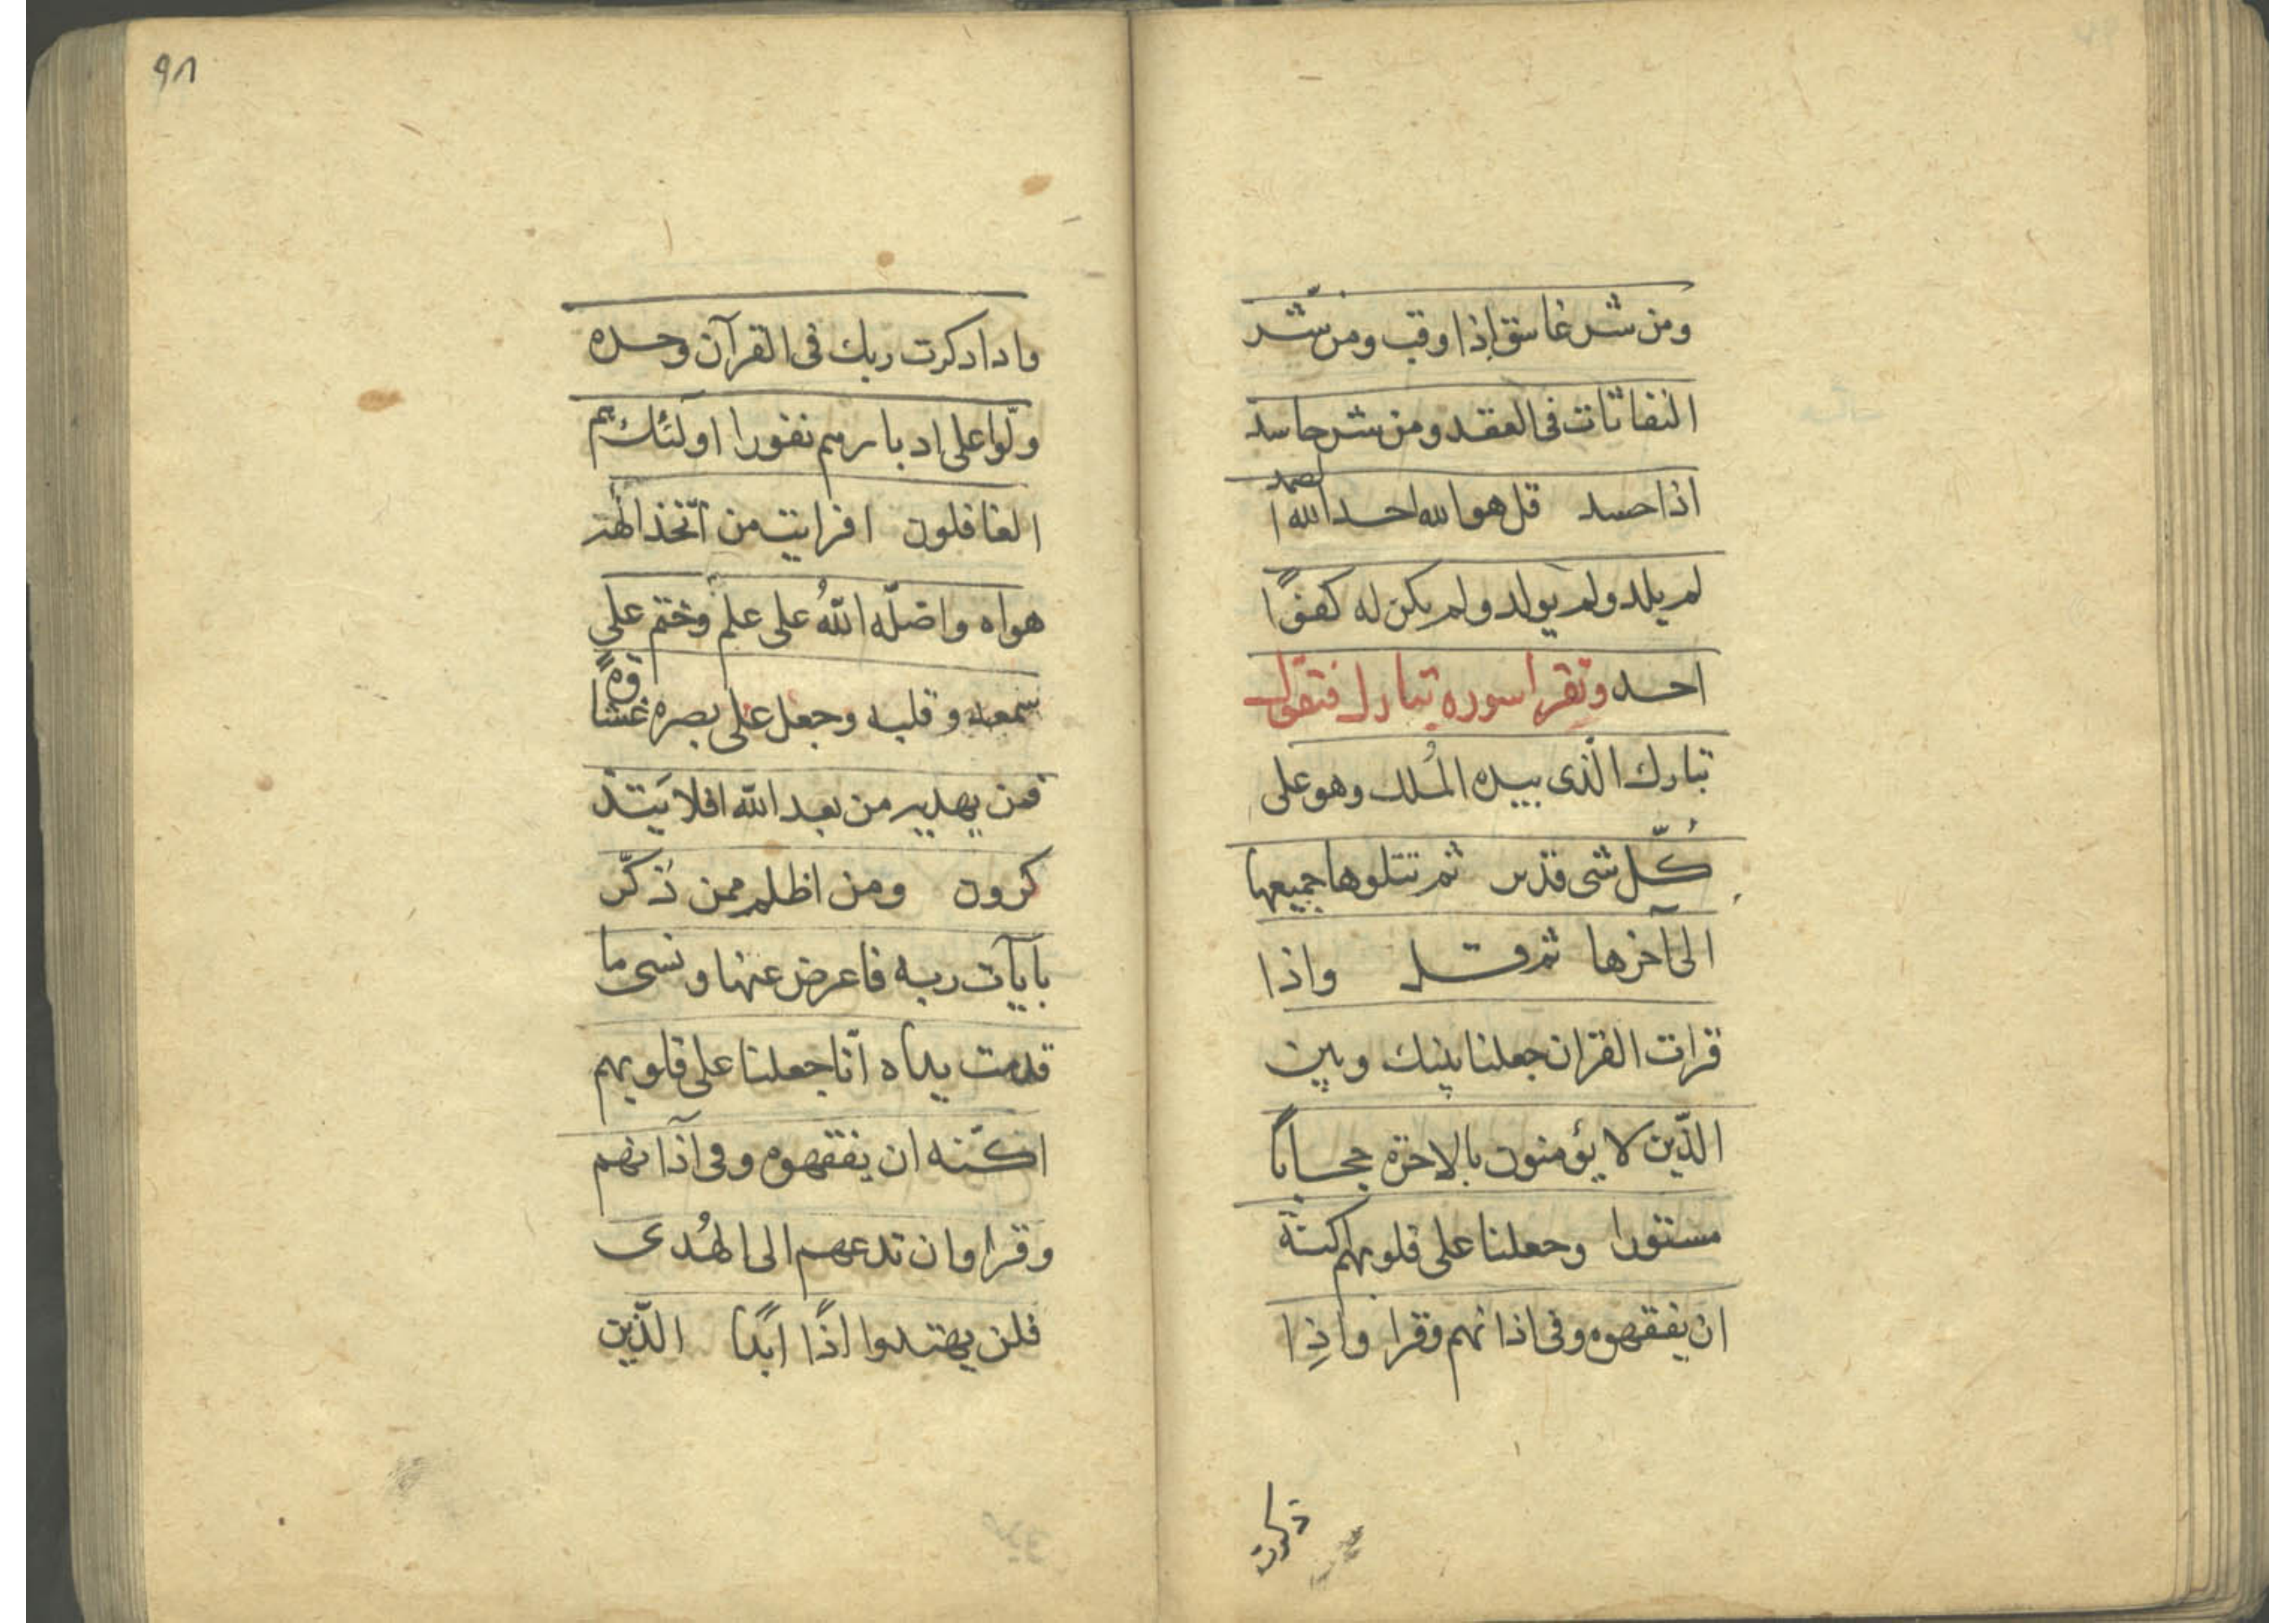 ومن شر غاسق إذا وقب ومن شّر
النفاثات فى العقد ومن شر حاسد
اذا حسد قل هو الله احد الله الصمد
لم يلد ولم يولد ولم يكن له كفوًا
احد وتقرا سورة تبارك فتقول
تبارك الّذى بيده المُلك وهو على
كُلّ شى قدير ثم تتلوها جميعها
الى آخرها ثم قل واذا
قرات القران جعلنا بينك وبين
الذّين لا يؤمنون بالاخرة حجابًا
مستورا وجعلنا على قلوبهم اكنة
ان يفقهوه وفى اذانهم وقرا واذِا
ذكرت
٩٨
واذا ذكرت ربك فى القرآن وحده
ولّوا على ادبارهم نفورا اولئك هم
الغافلون افرايت من اتّخذ الهٰه
هواه واضلّه اللّهُ على علم وختم على
سمعه وقلبه وجعل على بصره غشاوةً
فمن يهديه من بعد الله افلا يَتذ
كرون ومن اظلم ممن ذكّر
بايآت ربه فاعرض عنها ونسى ما
قدمت يداه انّا جعلنا على قلوبهم
اكنّه ان يفقهوه وفى آذانهم
وقرا وان تدعهم الى الهُدى
فلن يهتدوا اذًا ابدًا الذّين